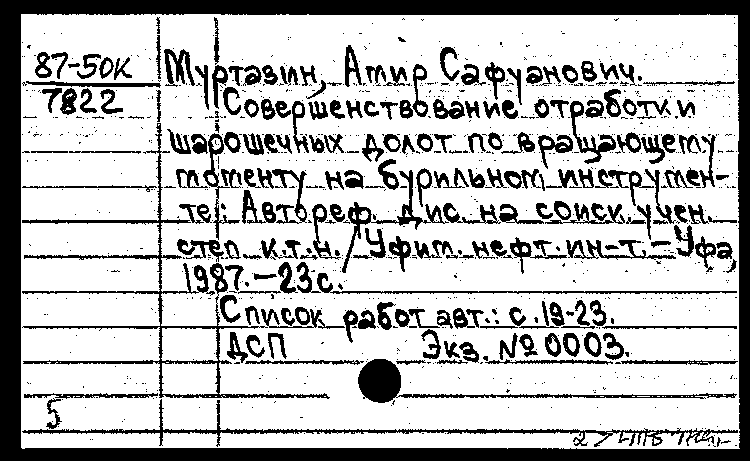 87-50К
7822
Муртазин, Амир Сафуанович.
Совершенствование отработки
шарошечных долот по вращающему
моменту на бурильном инструмен-
те: Автореф. дис. на соиск. учен.
степ. к.т.н. / Уфим. нефт. ин-т. – Уфа,
1987. – 23 с.
Список работ авт.: с. 19-23.
ДСП Экз. № 0003.
5